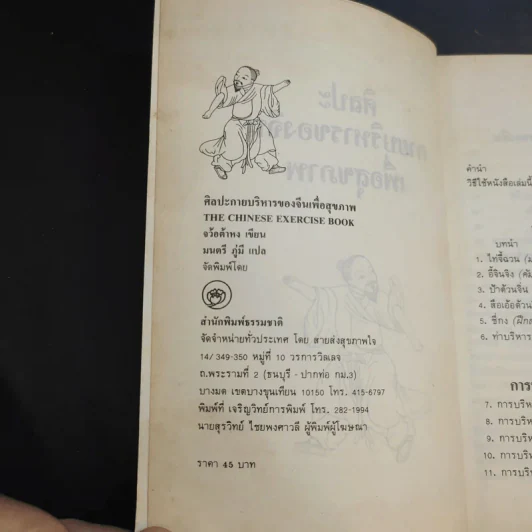 ศิลปะกายบริหารของจีนเพื่อสุขภาพ
THE CHINESE EXERCISE BOOK
จว้อต้าหง เขียน
มนตรี ภู่มี แปล
จัดพิมพ์โดย
สำนักพิมพ์ธรรมชาติ
จัดจำหน่ายทั่วประเทศ โดย สายส่งสุขภาพใจ
14/349-350 หมู่ที่ 10 วรการวิลเลจ
ถ.พระรามที่ 2 (ธนบุรี - ปากท่อ กม.3)
บางมด เขตบางขุนเทียน 10150 โทร. 415-6797
พิมพ์ที่ เจริญวิทย์การพิมพ์ โทร. 282-1994
นายสุรวิทย์ ไชยพงศาวลี ผู้พิมพ์ผู้โฆษณา
ราคา 45 บาท
คำนำ
วิธีใช้หนังสือเล่มนี้
บทนำ
1. ไท่จี้ฉวน
2. อี้จินจิง
3. ป้าต้วนจิ่น
4.
5. ชี่กง
6. ท่าบริหาร
7. การบริห
8. การบริห
9. การบริห
10. การบริห
11. การบริห